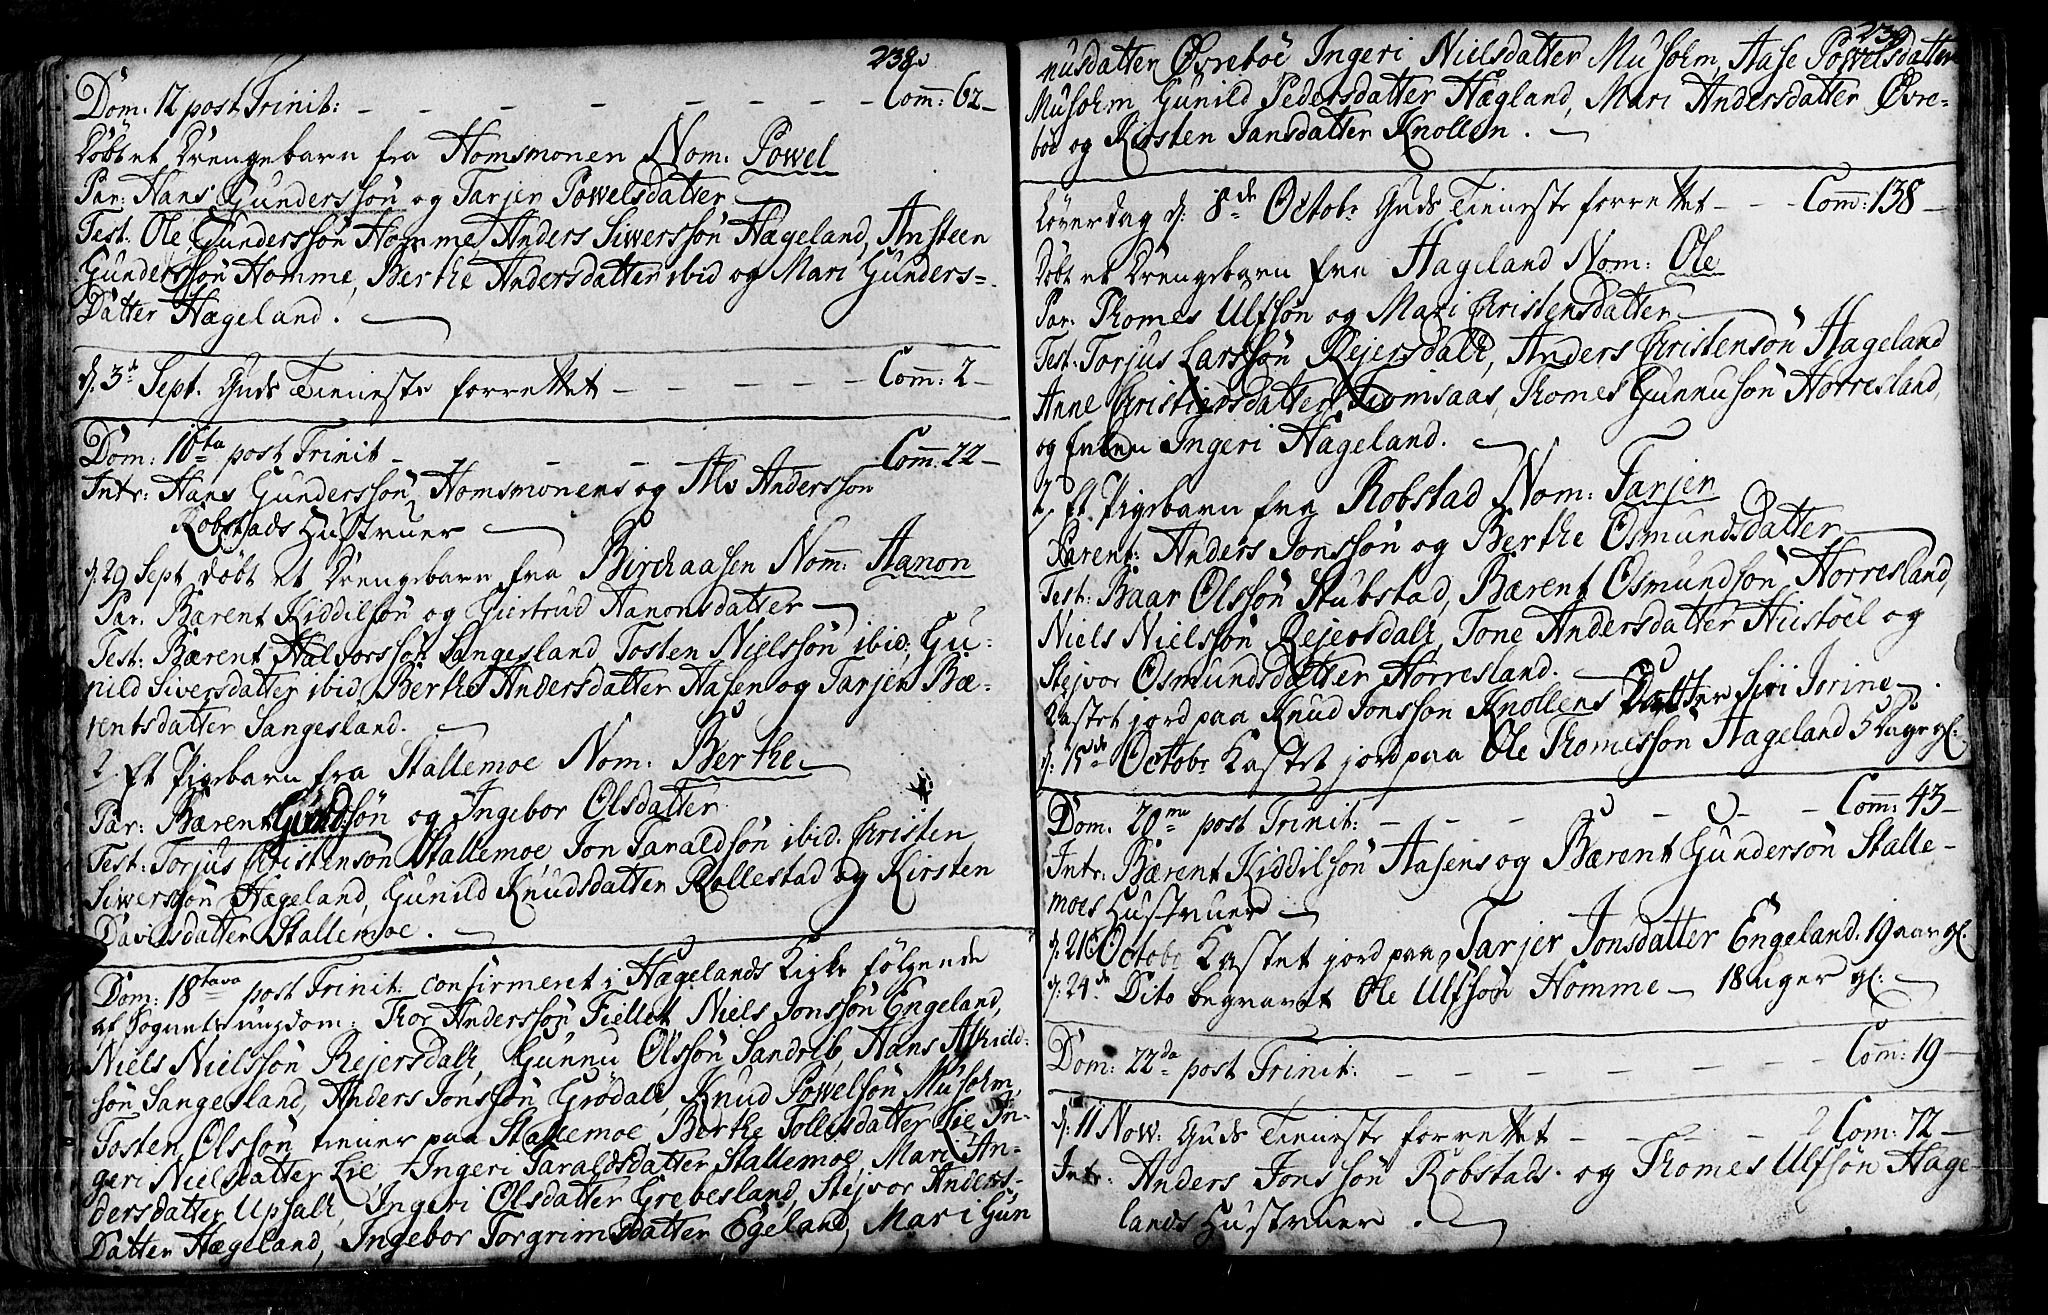 238.
Dom: 12 post Trinit: - - - - - - - - Com: 62 -
Döbt et Drengebarn fra Homsmonen Nom: Powel
Par: Hans Gunderssön og Tarjer Powelsdatter
Test: Ole Gunderssön Homme, Anders Siwerssön Hægeland, Ansteen
Gunderssön Homme, Berthe Andersdatter ibid og Mari Gunders=
Datter Hægeland.
d: 3d Sept. Guds Tieniste forrettet - - - - - Com: 2 -
Dom: 16ta post Trinit - - - - - Com: 22 -
Intr: Hans Gunderssön Homsmonens og Anderssön
Robstads Hustruer
d: 29 Sept döbt et Drengebarn fra Birchaasen Nom: Aanon
Par: Bærent Kiddilsön og Giertrud Aanonsdatter
Test: Bærent Halvorssön Sangesland Tosten Nielssön ibid, Gu-
nild Siversdatter ibid, Berthe Andersdatter Aasen og Tarjer Bæ-
rentsdatter Sangesland.
2. Et Pigebarn fra Stallemoe Nom: Berthe
Par: Bærent og Ingebor Olsdatter
Test: Torjus Kristensön Stallemoe, Jon Taraldsön ibid. Kristen
Siwerssön Hægeland, Gunild Knudsdatter Rollestad og Kirsten
Davidsdatter Stallemoe.
Dom: 18tava post Trinit: confirmeret i Hægelands Kirke fölgende
af Sognets ungdom: Thor Anderssön Fiellet, Niels Jonssön Engeland,
Niels Nielssön Rejersdall, Gunnu Olssön Sandrib, Hans Askild-
sön Sangesland, Anders Jonssön Grödall, Knud Powelsön Musolm,
Tosten Olssön tiener paa Stallemoe, Berthe Tollefsdatter Lie, In-
geri Nielsdatter Lie, Ingeri Taraldsdatter Stallemoe, Mari An-
dersdatter Upsall, Ingeri Olsdatter Grebesland, Stejvor Anders-
Datter Hægeland, Ingebor Torgrimsdatter Egeland, Mari Gun
239
nusdatter Övreboe Ingeri Nielsdatter Musolm, Aase Powelsdatter
Musolm, Gunild Pedersdatter Hægland, Mari Andersdatter Övre-
böe og Kirsten Jansdatter Knollen.
Löverdag d: 8de Octobr Guds Tieniste forrettet - - - Com: 138 -
Döbt et Drengebarn fra Hageland Nom: Ole
Par: Thomes Ulfsön og Mari Kristensdatter
Test: Torjus Larssön Rejersdall, Anders Kristensön Hageland
Anne Kristensdatter Tiomsaas, Thomes Gunnusön Horresland,
og Ingeri Hageland.
2. Et Pigebarn fra Robstad Nom: Tarjer
Parent: Anders Jonssön og Berthe Osmundsdatter
Test: Baar Olssön Stubstad, Bærent Osmundsön Horresland,
Niels Nielssön Rejersdall, Tone Andersdatter Hustöel og
Stejvor Osmundsdatter Horresland.
Kastet jord paa Knud Jonssön Knollens Datter Siri Jorine
d: 15de Octobr Kastet jord paa Ole Thomessön Hageland 5 Dage gl:
Dom. 20ma post Trinit: - - - - - - Com: 43 -
Intr: Bærent Kiddilsön Aasens og Bærent Gundersön Stalle-
moes Hustruer
d: 21 Octobr Kastet jord paa Tarjer Jonsdatter Engeland. 19 aar gl.
d: 24de Dito begravet Ole Ulfsön Homme - 18 uger gl:
Dom: 22da post Trinit: - - - - - - - Com: 19 -
d: 11 Now: Guds Tieniste forrettet - - - - Com: 72 -
Intr: Anders Jonssön Robstads. og Thomes Ulfsön Hage-
lands Hustruer.